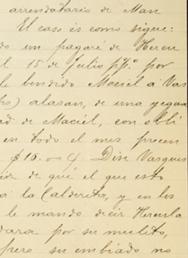 arrendatario de Man
El caso es como sigue:
do un pagaré de Heren
15 de Julio ppº. por
le bendido Maciel á Vas
alasan, de una yegua
de Maciel, con obli
en todo el mes presen
$16.00 4 Dise Vasques
de qué el que está
á la Calderita, y en los
le mando decir Hercula
por su mulito,
pero su embiado no